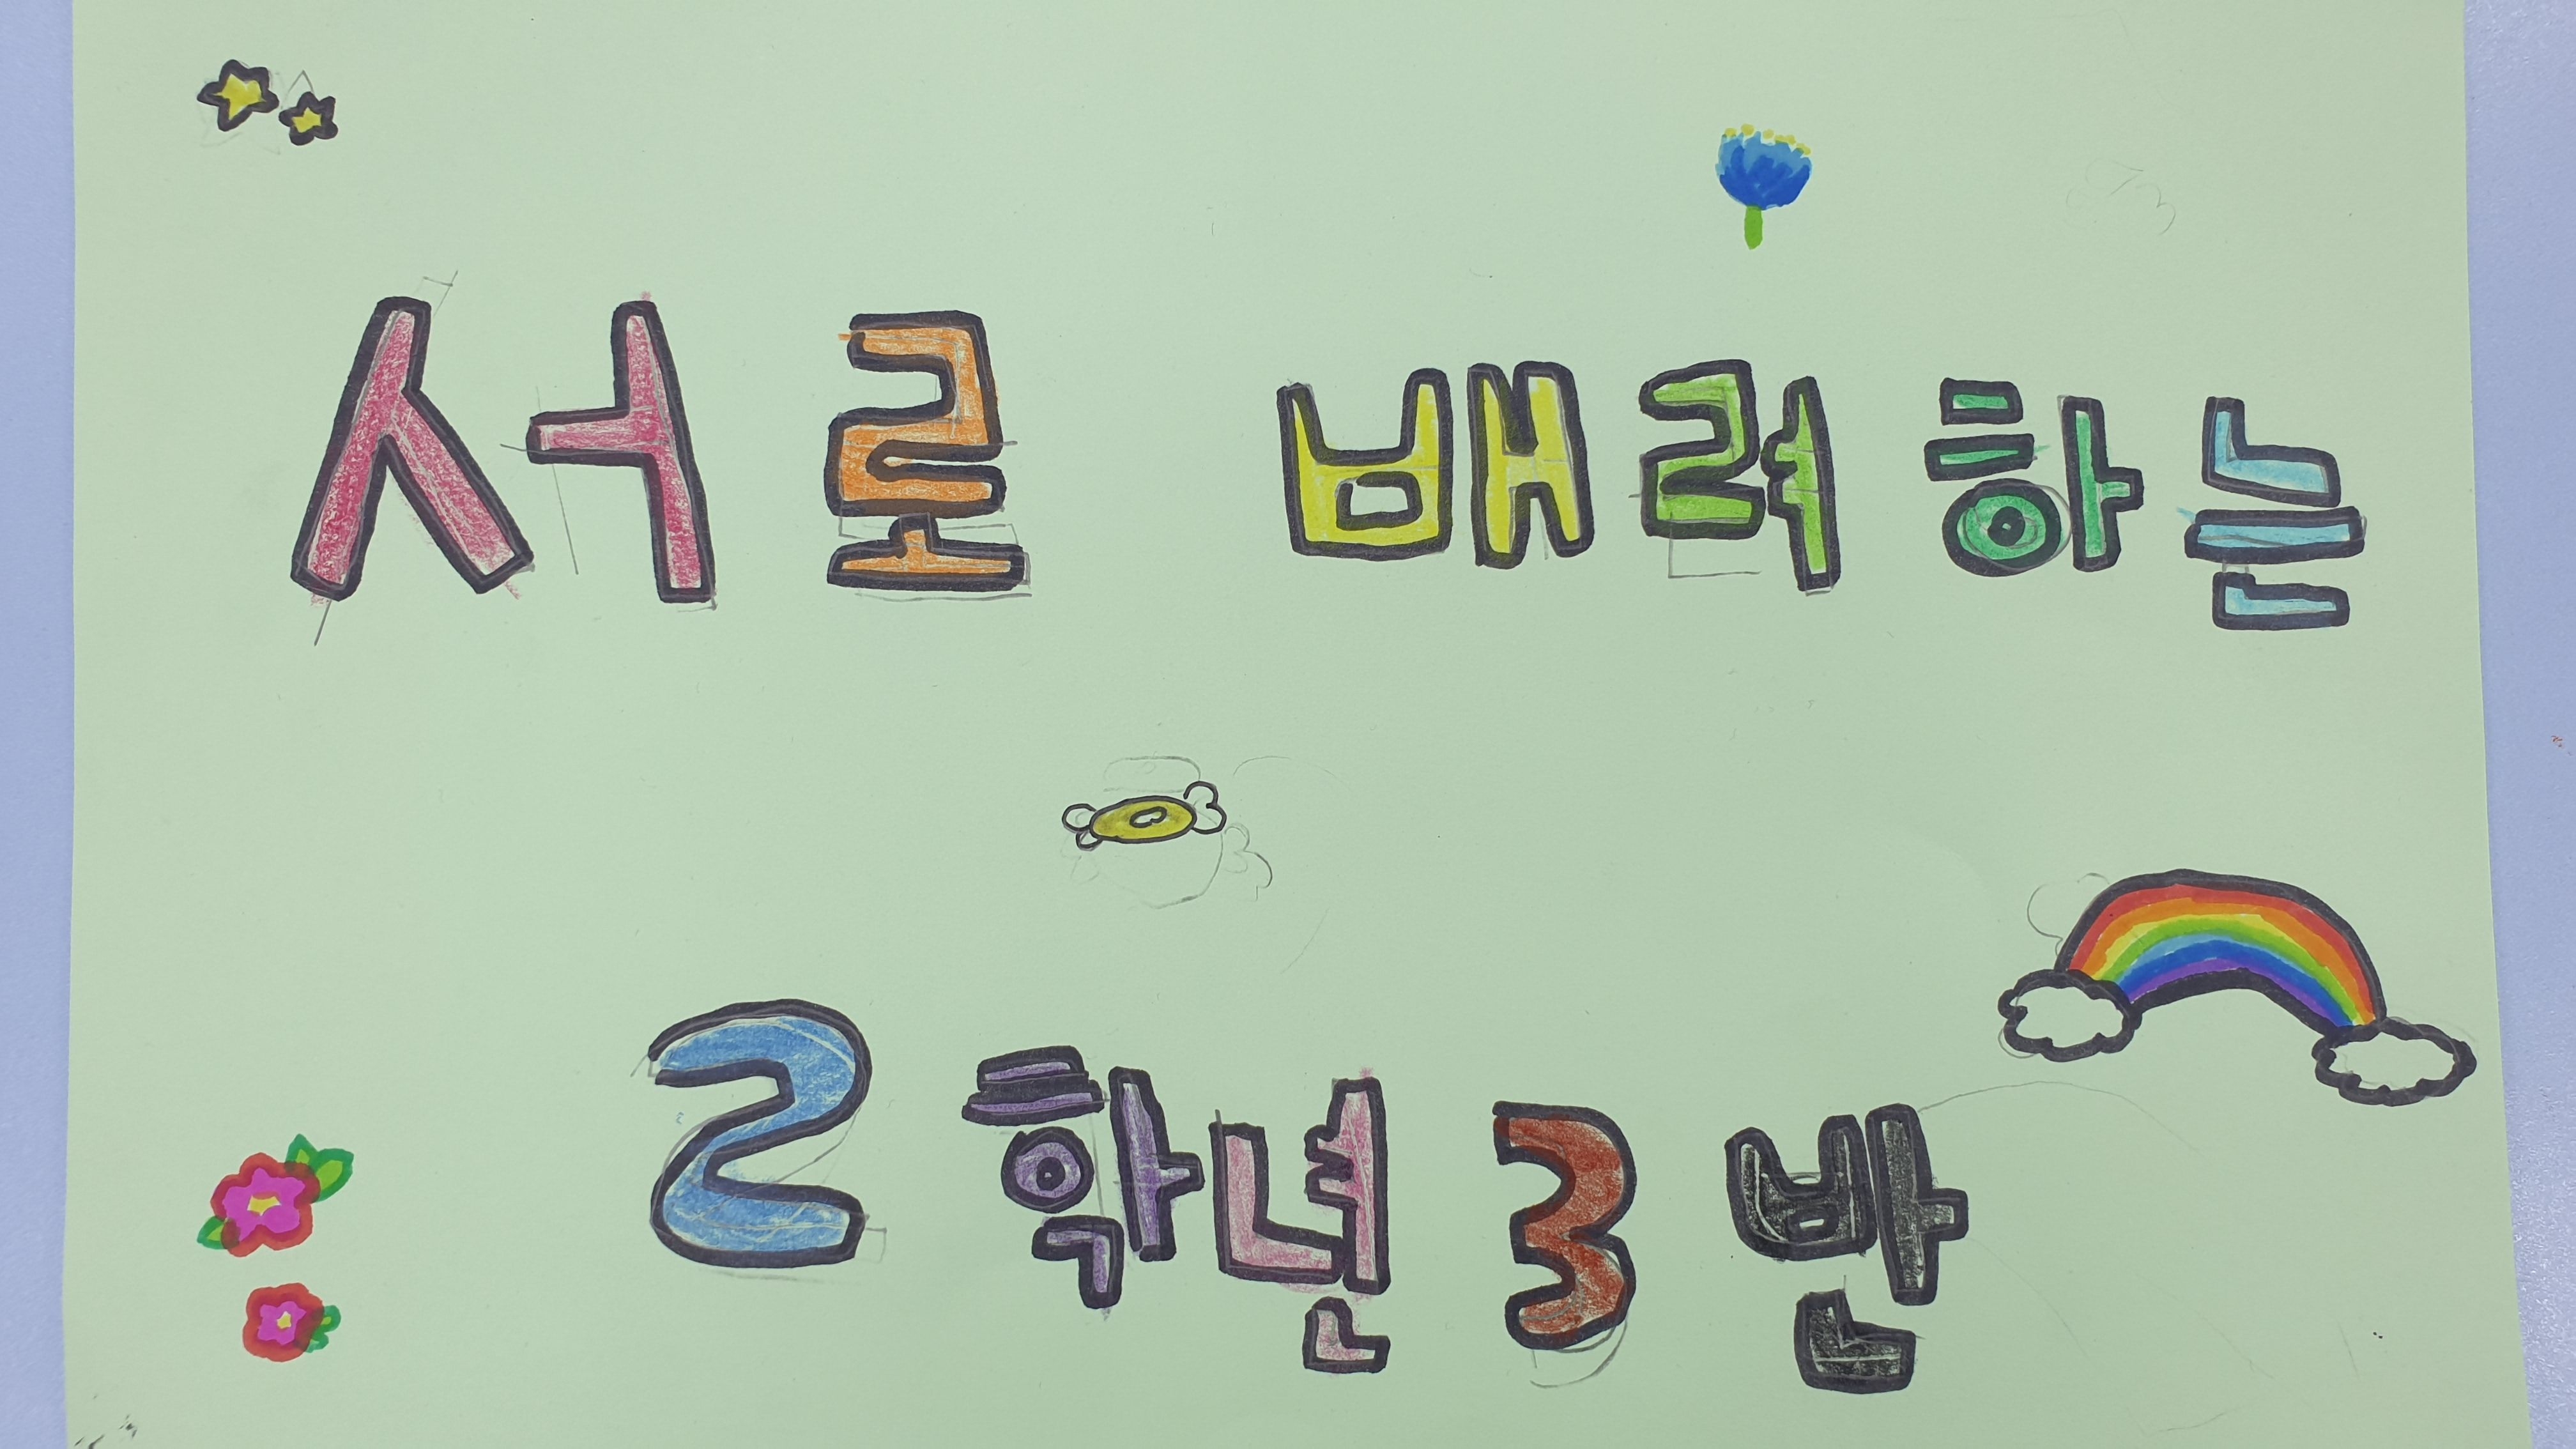 서로 배려하는
2학년 3반